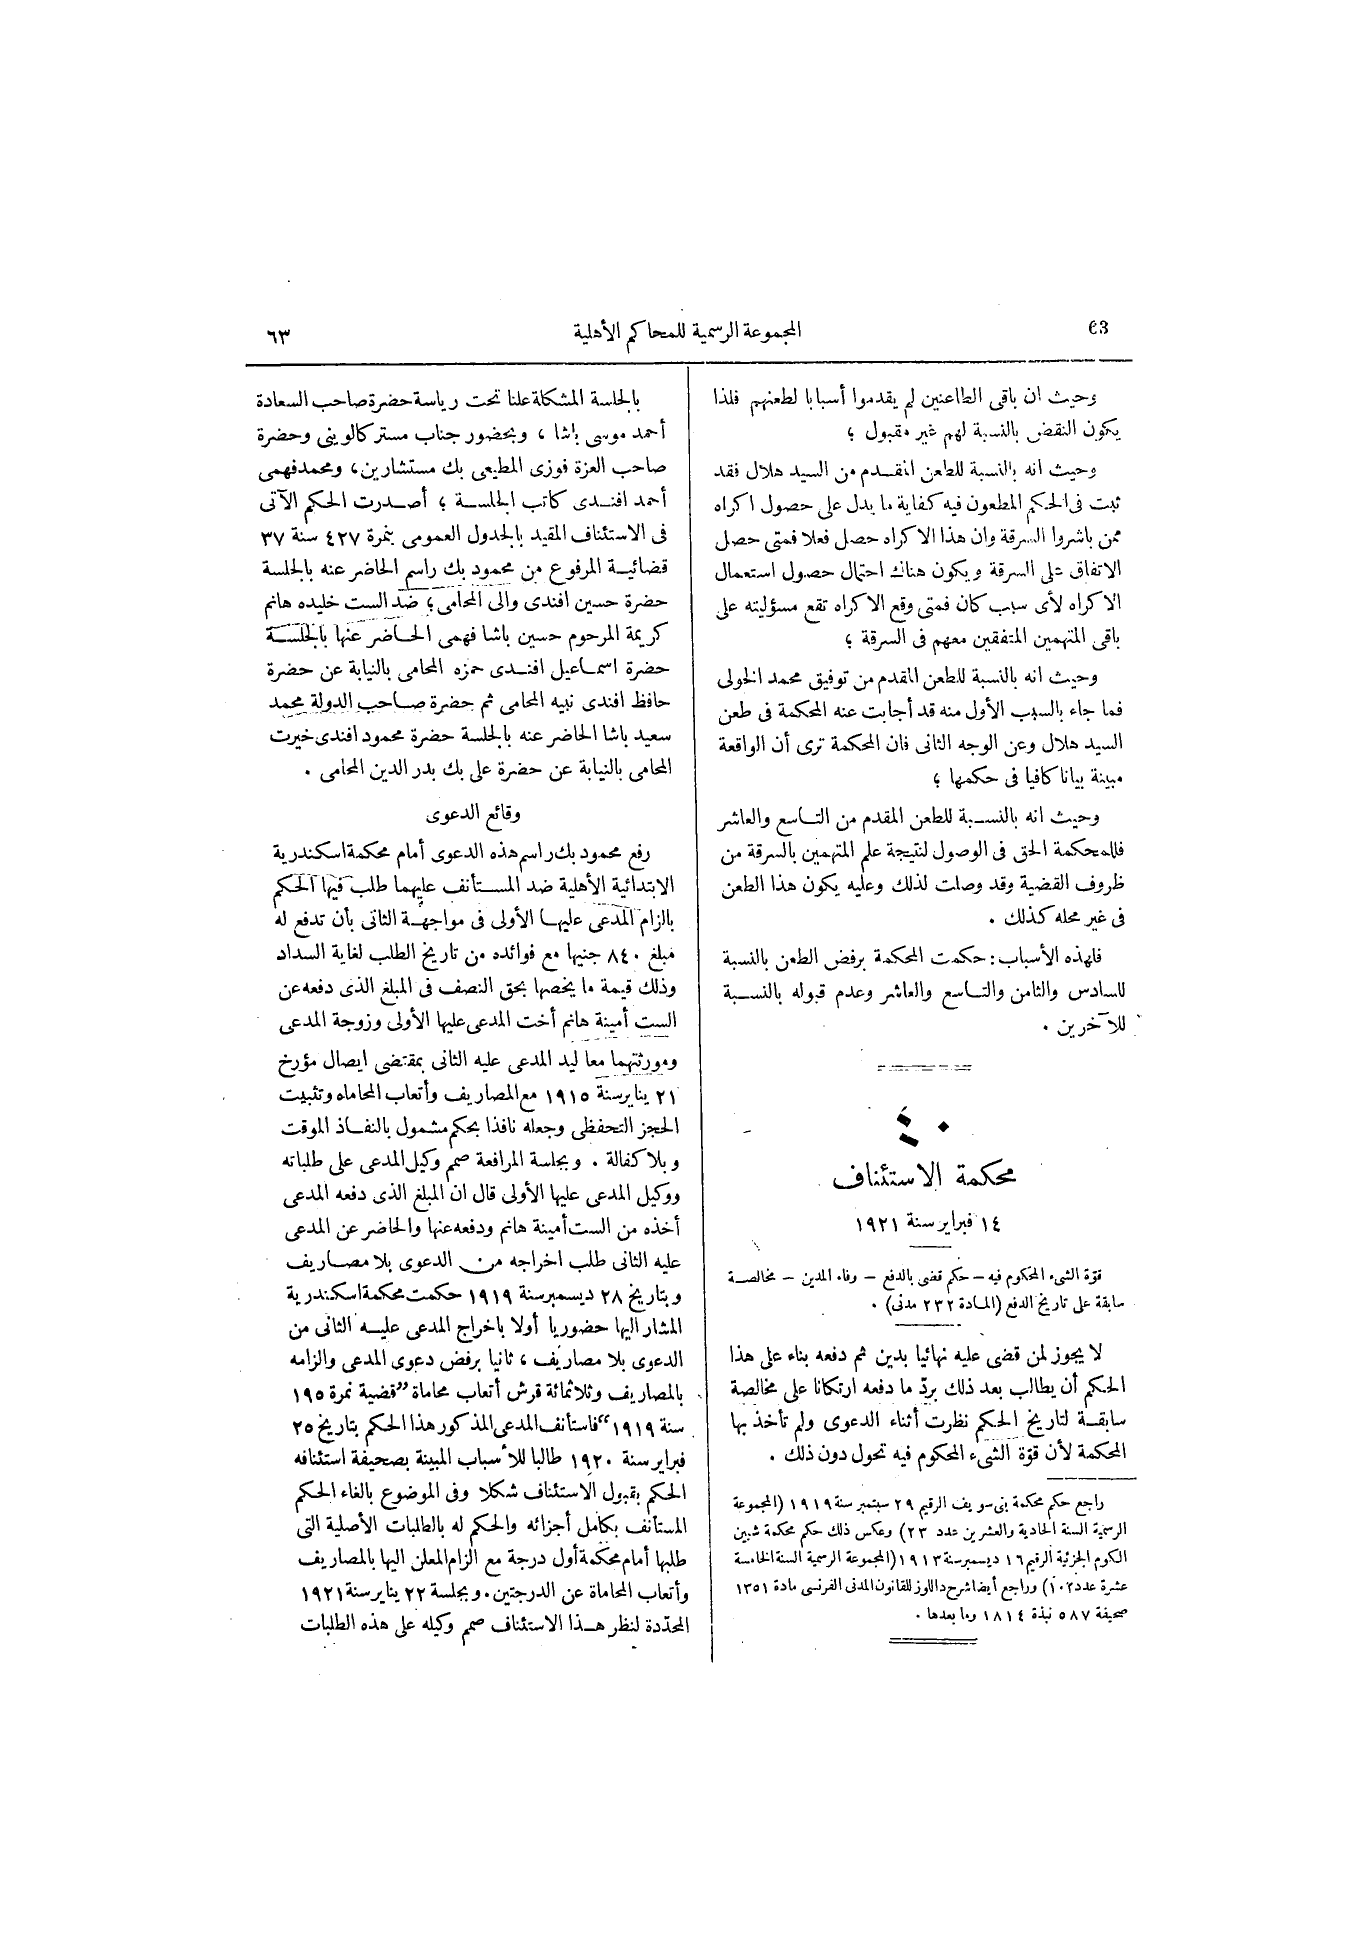 63
المجموعة الرسمية للمحاكم الأهلية
٦٣
وحيث ان باقى الطاعنين لم يقدموا أسبابا لطعنهم فلذا
يكون النقض بالنسبة لهم غير مقبول ؛
وحيث انه بالنسبة للطعن المقدم من السيد هلال فقد
ثبت فى الحكم المطعون فيه كفاية ما يدل على حصول اكراه
ممن باشروا السرقة وان هذا الاكراه حصل فعلا فمتى حصل
الاتفاق على السرقة ويكون هناك احتمال حصول استعمال
الاكراه لأى سبب كان فمتى وقع الاكراه تقع مسؤليته على
باقى المتهمين المتفقين معهم فى السرقة ؛
وحيث انه بالنسبة للطعن المقدم من توفيق محمد الخولى
فما جاء بالسبب الأول منه قد أجابت عنه المحكمة فى طعن
السيد هلال وعن الوجه الثانى فان المحكمة ترى أن الواقعة
مبينة بيانا كافيا فى حكمها ؛
وحيث انه بالنسبة للطعن المقدم من التاسع والعاشر
فللمحكمة الحق فى الوصول لنتيجة علم المتهمين بالسرقة من
ظروف القضية وقد وصلت لذلك وعليه يكون هذا الطعن
فى غير محله كذلك .
فلهذه الأسباب : حكمت المحكمة برفض الطعن بالنسبة
للسادس والثامن والتاسع والعاشر وعدم قبوله بالنسبة
للآخرين .
٤٠
محكمة الاستئناف
١٤ فبراير سنة ١٩٢١
قوّة الشىء المحكوم فيه – حكم قضى بالدفع – وفاء المدين – مخالصة
سابقة على تاريخ الدفع (المادة ٢٣٢ مدنى) .
لا يجوز لمن قضى عليه نهائيا بدين ثم دفعه بناء على هذا
الحكم أن يطالب بعد ذلك بردّ ما دفعه ارتكانا على مخالصة
سابقة لتاريخ الحكم نظرت أثناء الدعوى ولم تأخذ بها
المحكمة لأن قوّة الشىء المحكوم فيه تحول دون ذلك .
راجع حكم محكمة بنى سويف الرقيم ٢٩ سبتمبر سنة ١٩١٩ (المجموعة
الرسمية السنة الحادية والعشرين عدد ٢٣) وعكس ذلك حكم محكمة شبين
الكوم الجزئية الرقيم ١٦ ديسمبر سنة ١٩١٣ (المجموعة الرسمية السنة الخامسة
عشرة عدد ١٠٢) وراجع أيضا شرح داللوز للقانون المدنى الفرنسى مادة ١٣٥١
صحيفة ٥٨٧ نبذة ١٨١٤ وما بعدها .
بالجلسة المشكلة علنا تحت رياسة حضرة صاحب السعادة
أحمد موسى باشا ، وبحضور جناب مستر كالوينى وحضرة
صاحب العزة فوزى المطيعى بك مستشارين، ومحمد فهمى
أحمد افندى كاتب الجلسة ؛ أصدرت الحكم الآتى
فى الاستئناف المقيد بالجدول العمومى بنمرة ٤٢٧ سنة ٣٧
قضائية المرفوع من محمود بك راسم الحاضر عنه بالجلسة
حضرة حسين افندى والى المحامى؛ ضد الست خليده هانم
كريمة المرحوم حسين باشا فهمى الحاضر عنها بالجلسة
حضرة اسماعيل افندى حمزه المحامى بالنيابة عن حضرة
حافظ افندى نبيه المحامى ثم حضرة صاحب الدولة محمد
سعيد باشا الحاضر عنه بالجلسة حضرة محمود افندى خيرت
المحامى بالنيابة عن حضرة على بك بدر الدين المحامى .
وقائع الدعوى
رفع محمود بك راسم هذه الدعوى أمام محكمة اسكندرية
الابتدائية الأهلية ضد المستأنف عليهما طلب فيها الحكم
بالزام المدعى عليها الأولى فى مواجهة الثانى بأن تدفع له
مبلغ ٨٤٠ جنيها مع فوائده من تاريخ الطلب لغاية السداد
وذلك قيمة ما يخصها بحق النصف فى المبلغ الذى دفعه عن
الست أمينة هانم أخت المدعى عليها الأولى وزوجة المدعى
ومورثتهما معا ليد المدعى عليه الثانى بمقتضى ايصال مؤرخ
٢١ يناير سنة ١٩١٥ مع المصاريف وأتعاب المحاماه وتثبيت
الحجز التحفظى وجعله نافذا بحكم مشمول بالنفاذ الموقت
وبلا كفالة . وبجلسة المرافعة صمم وكيل المدعى على طلباته
ووكيل المدعى عليها الأولى قال ان المبلغ الذى دفعه المدعى
أخذه من الست أمينة هانم ودفعه عنها والحاضر عن المدعى
عليه الثانى طلب اخراجه من الدعوى بلا مصاريف
وبتاريخ ٢٨ ديسمبر سنة ١٩١٩ حكمت محكمة اسكندرية
المشار اليها حضوريا أولا باخراج المدعى عليه الثانى من
الدعوى بلا مصاريف ، ثانيا برفض دعوى المدعى والزامه
بالمصاريف وثلاثمائة قرش أتعاب محاماة ”قضية نمرة ١٩٥
سنة ١٩١٩“ فاستأنف المدعى المذكور هذا الحكم بتاريخ ٢٥
فبراير سنة ١٩٢٠ طالبا للأسباب المبينة بصحيفة استئنافه
الحكم بقبول الاستئناف شكلا وفى الموضوع بالغاء الحكم
المستأنف بكامل أجزائه والحكم له بالطلبات الأصلية التى
طلبها أمام محكمة أول درجة مع الزام المعلن اليها بالمصاريف
وأتعاب المحاماة عن الدرجتين. وبجلسة ٢٢ يناير سنة ١٩٢١
المحدّدة لنظر هذا الاستئناف صمم وكيله على هذه الطلبات